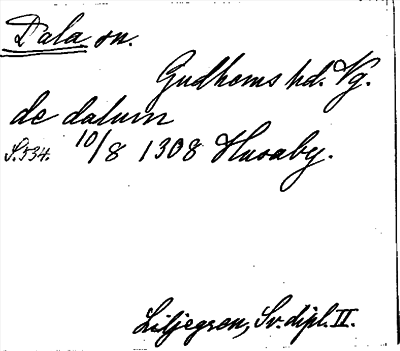 Dala sn.
Gudhems hd. Vg.
de dalum
S. 534. 10/8 1308 Husaby.
Liljegren, Sv. dipl. II.